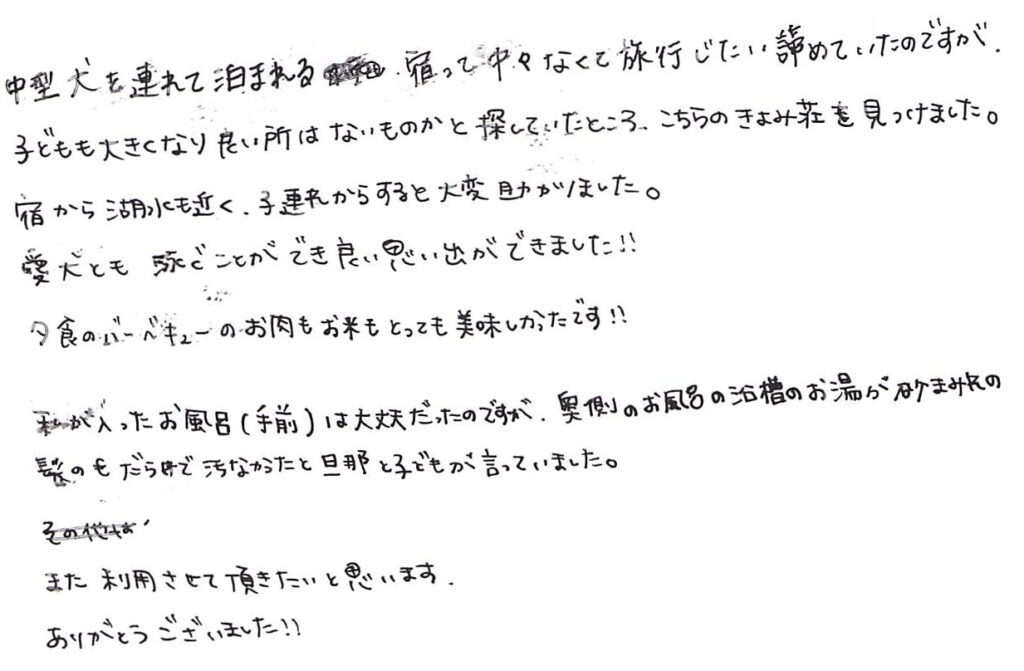 中型犬を連れて泊まれる 宿って中々なくて旅行じたい諦めていたのですが、
子どもも大きくなり良い所はないものかと探していたところ、こちらのきよみ荘を見つけました。
宿から湖水も近く、子連れからすると大変助かりました。
愛犬とも 泳ぐことができ良い思い出ができました!!
夕食のバーベキューのお肉もお米もとっても美味しかったです!!
私が入ったお風呂(手前)は大丈夫だったのですが、奥側のお風呂の浴槽のお湯が砂まみれの
髪の毛だらけで汚なかったと旦那と子どもが言っていました。
また利用させて頂きたいと思います.
ありがとうございました!!